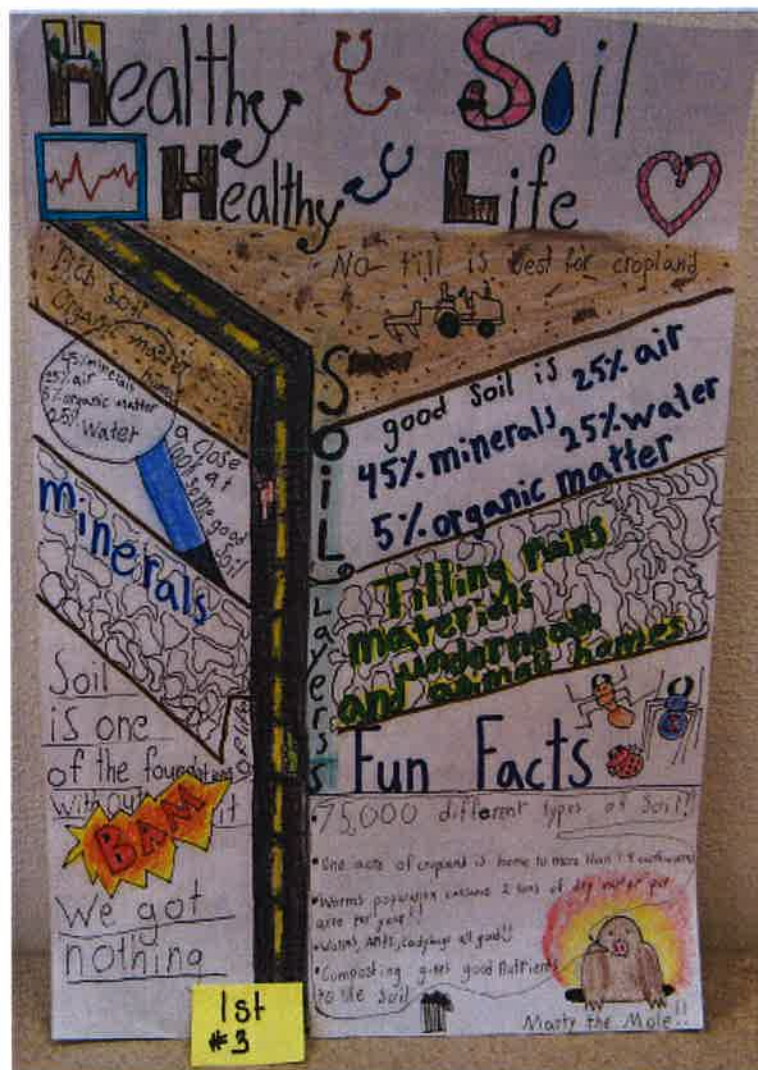 Healthy Soil
Healthy Life
No-till is best for cropland
Rich Soil
organic matter
45% minerals
25% air
5% organic matter
25% Water
a close
look at
some good
Soil
Soil Layers
good Soil is 25% air
45% minerals 25% water
5% organic matter
minerals
Tilling ruins
materials
underneath
and animal homes
Soil
is one
of the foundations
of life
without it
BAM
We got
nothing
Fun Facts
•75,000 different types of Soil!!
•One acre of cropland is home to more than
•Worms population consume 2 tons of dry matter per
acre per year!!
•Worms, Ants, Ladybugs all good!!
•Composting gives good Nutrients
to the Soil
Marty the Mole!!
1st
#3